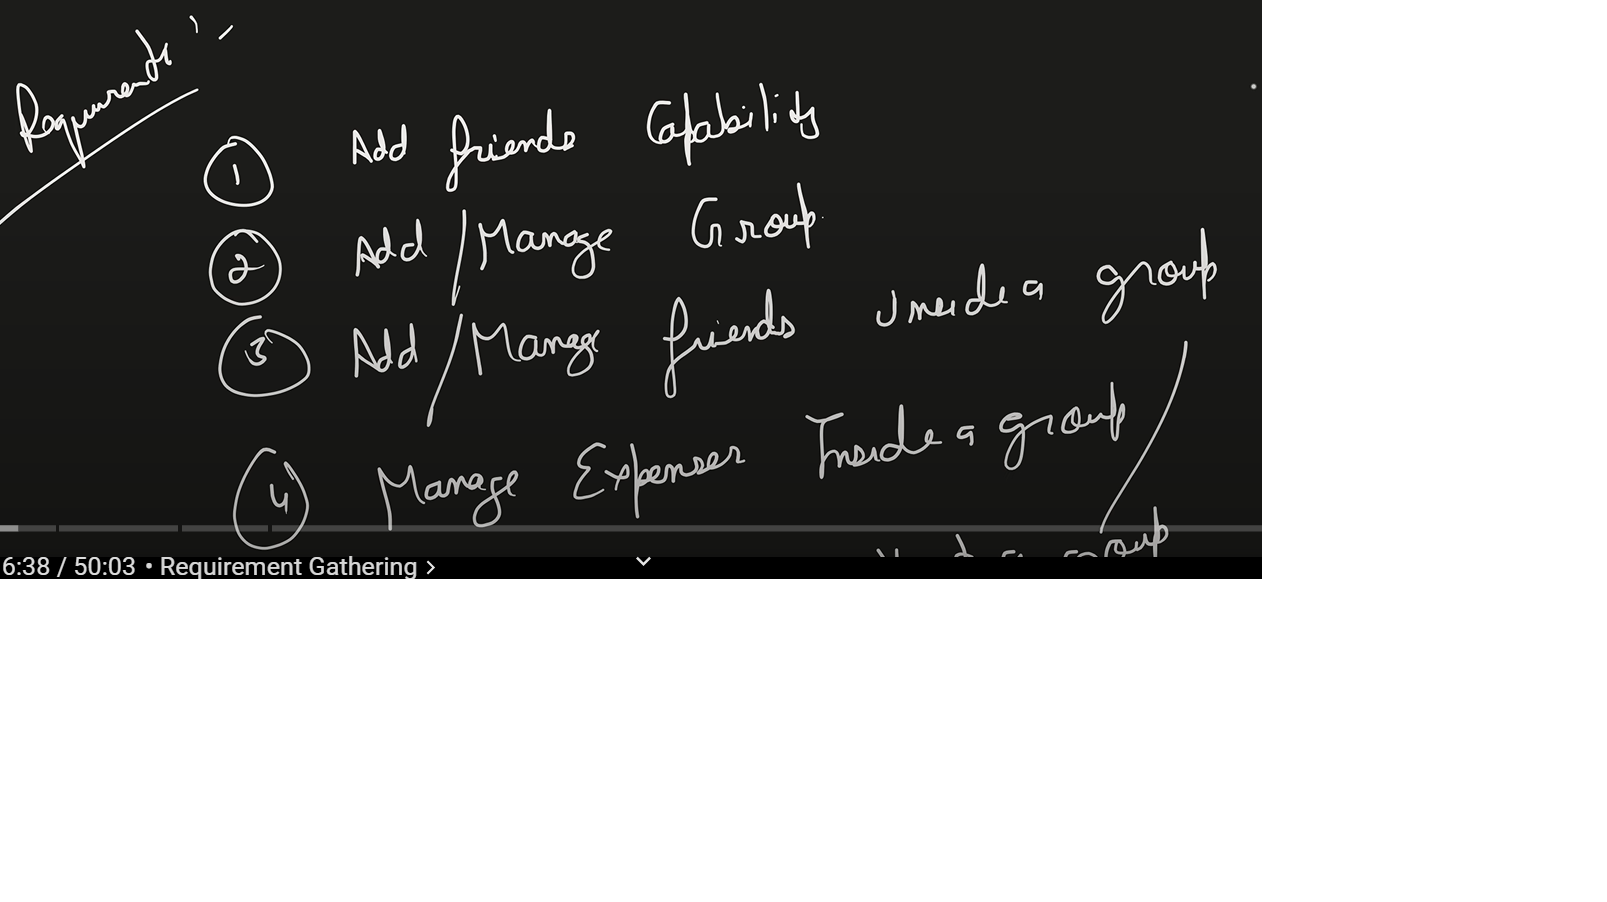 Requirements :-
1 Add friends Capability
2 Add / Manage Group
3 Add / Manage friends Inside a group
4 Manage Expenses Inside a group
group
6:38 / 50:03 • Requirement Gathering >